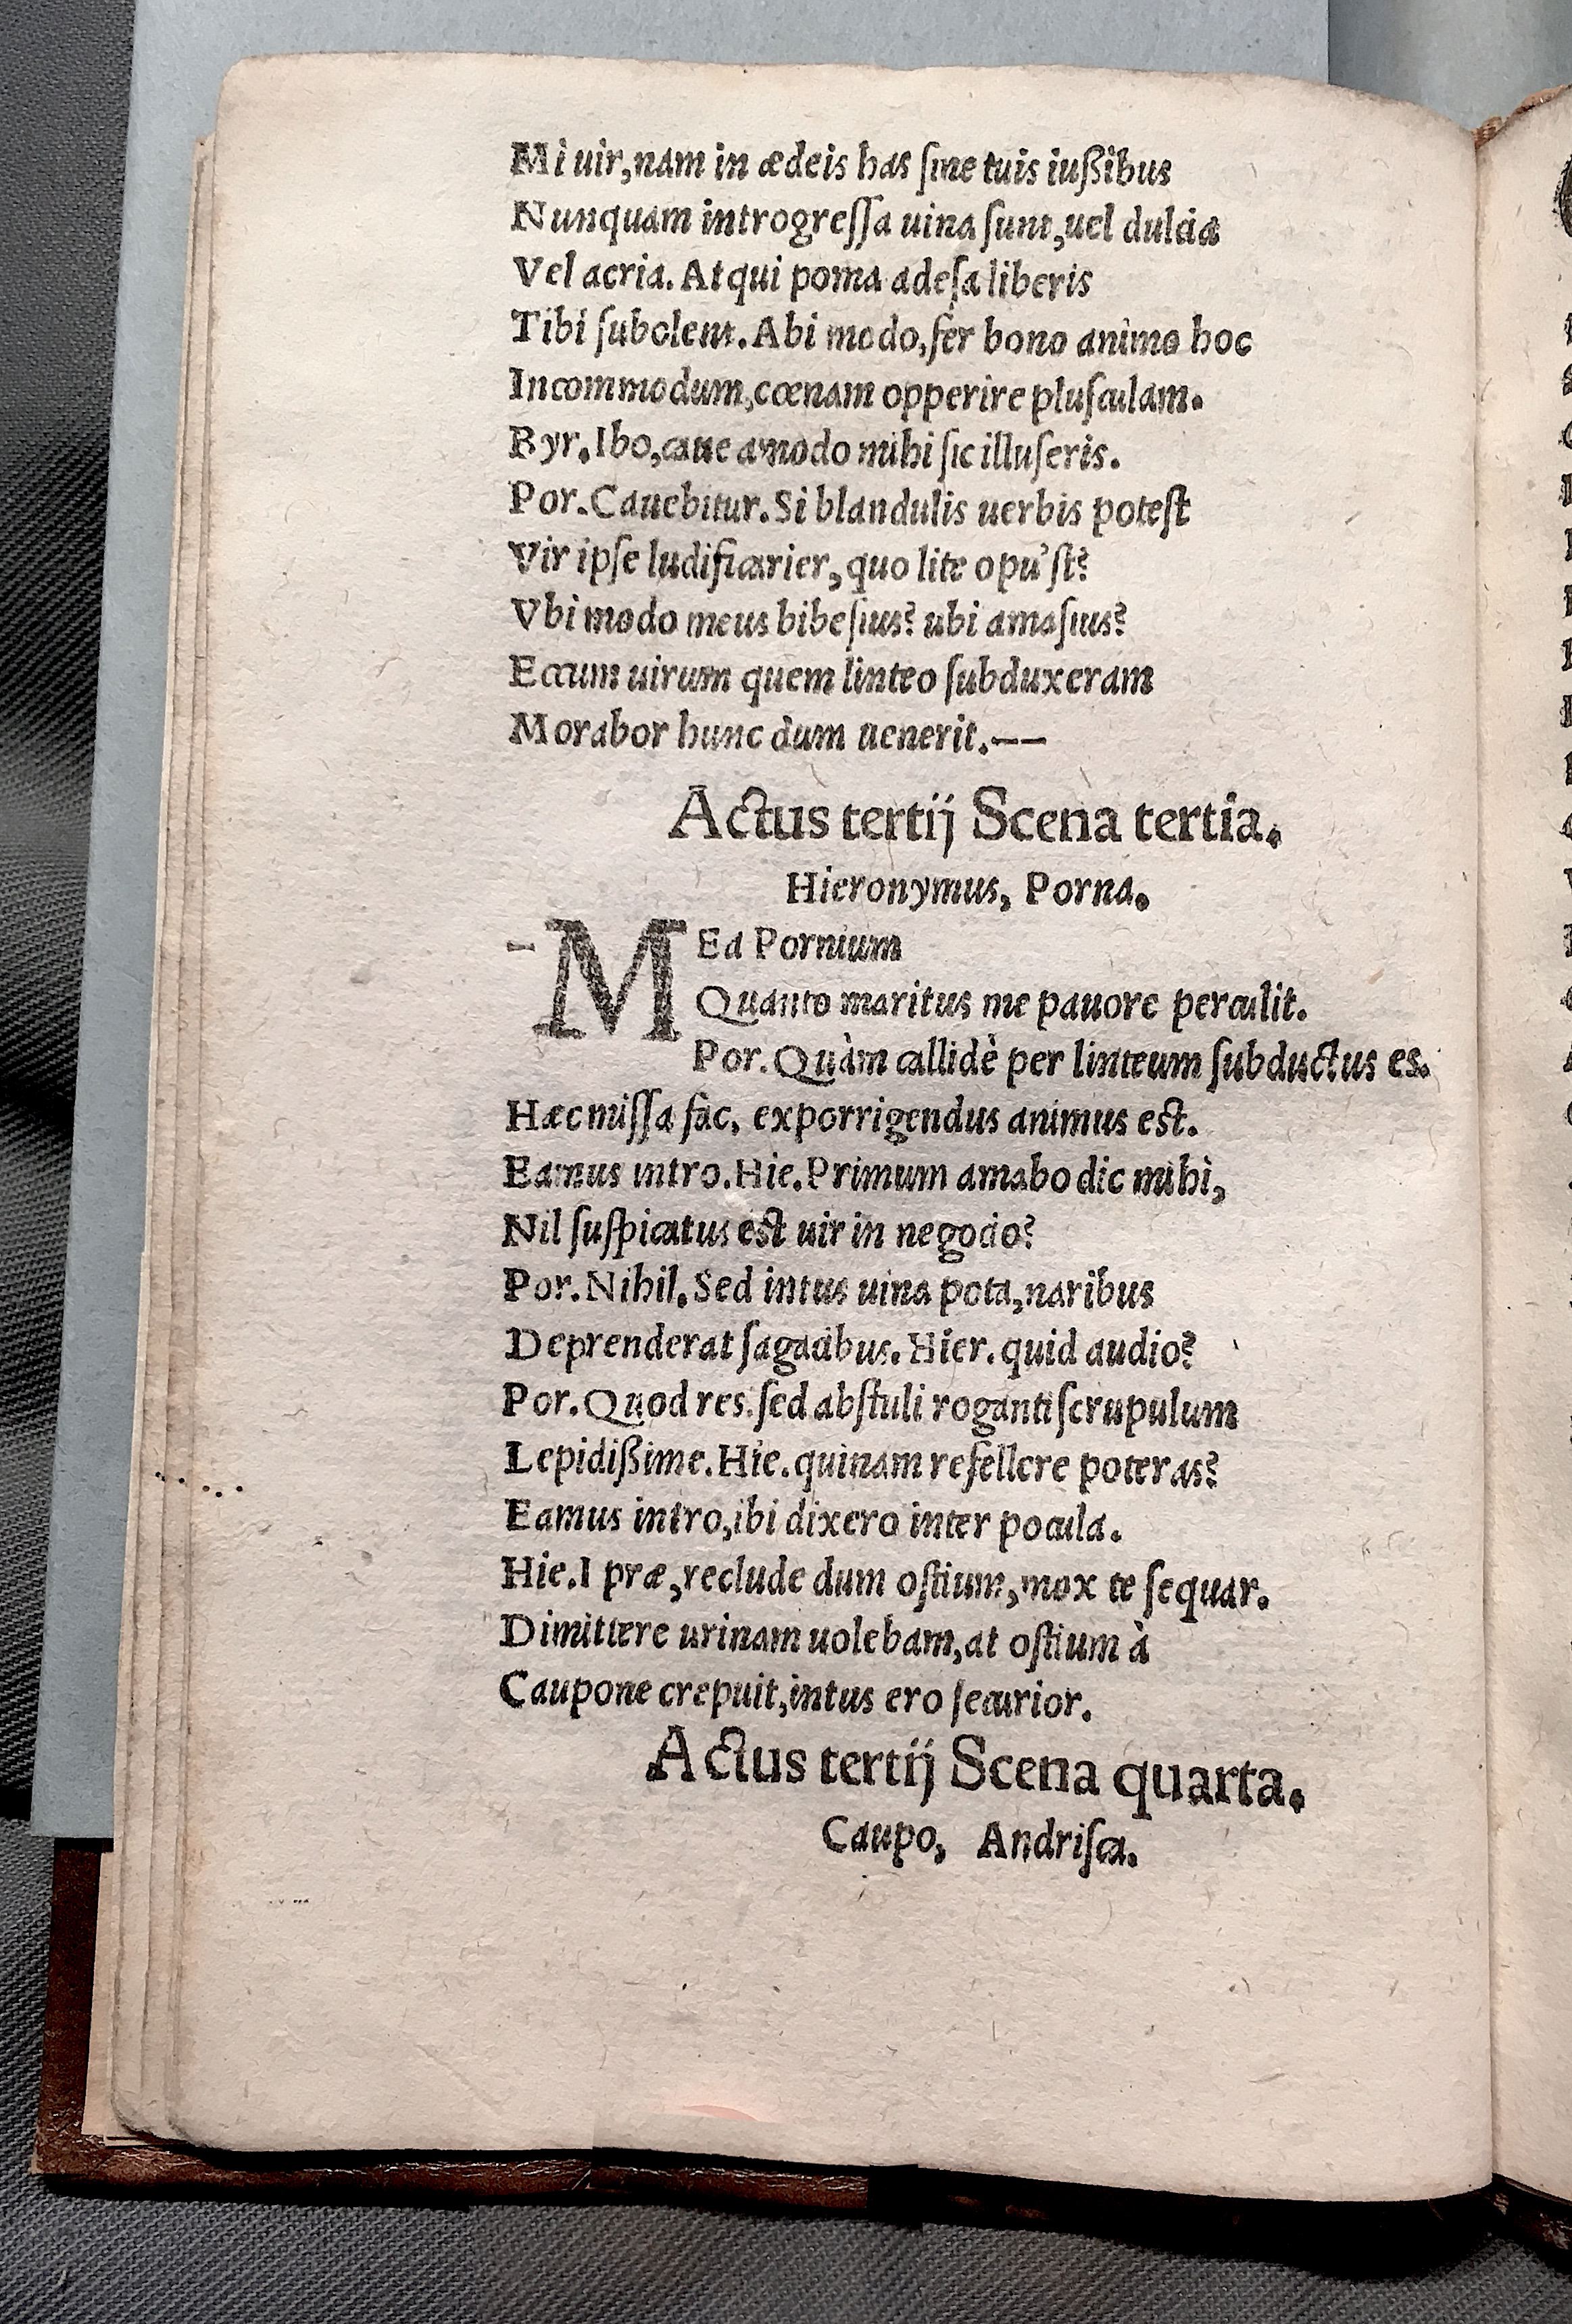 Mi uir, nam in ædeis has ſine tuis iußibus
Nunquam introgreſſa uina ſunt, uel dulcia
Vel acria. Atqui poma adeſa liberis
Tibi ſubolent. Abi modo, fer bono animo hoc
Incommodum, cœnam opperire pluſculam.
Byr. Ibo, caue amodo mihi ſic illuſeris.
Por. Cauebitur. Si blandulis uerbis poteſt
Vir ipſe ludificarier, quo lite opu'ſt?
Vbi modo meus bibeſius? ubi amaſius?
Eccum uirum quem linteo ſubduxeram
Morabor hunc dum uenerit.——
Actus tertij Scena tertia.
Hieronymus, Porna.
MEa Pornium
Quanto maritus me pauore perculit.
Por. Quàm callidè per linteum ſubductus es.
Hæc miſſa fac, exporrigendus animus est.
Eamus intro. Hie. Primum amabo dic mihi,
Nil ſuſpicatus est uir in negocio?
Por. Nihil. Sed intus uina pota, naribus
Deprenderat ſagacibus. Hier. quid audio?
Por. Quod res. ſed abſtuli roganti ſcrupulum
Lepidißime. Hie. quinam refellere poteras?
Eamus intro, ibi dixero inter pocula.
Hie. I præ, reclude dum oſtium, mox te ſequar.
Dimittere urinam uolebam, at oſtium à
Caupone crepuit, intus ero ſecurior.
Actus tertij Scena quarta.
Caupo, Andriſca.